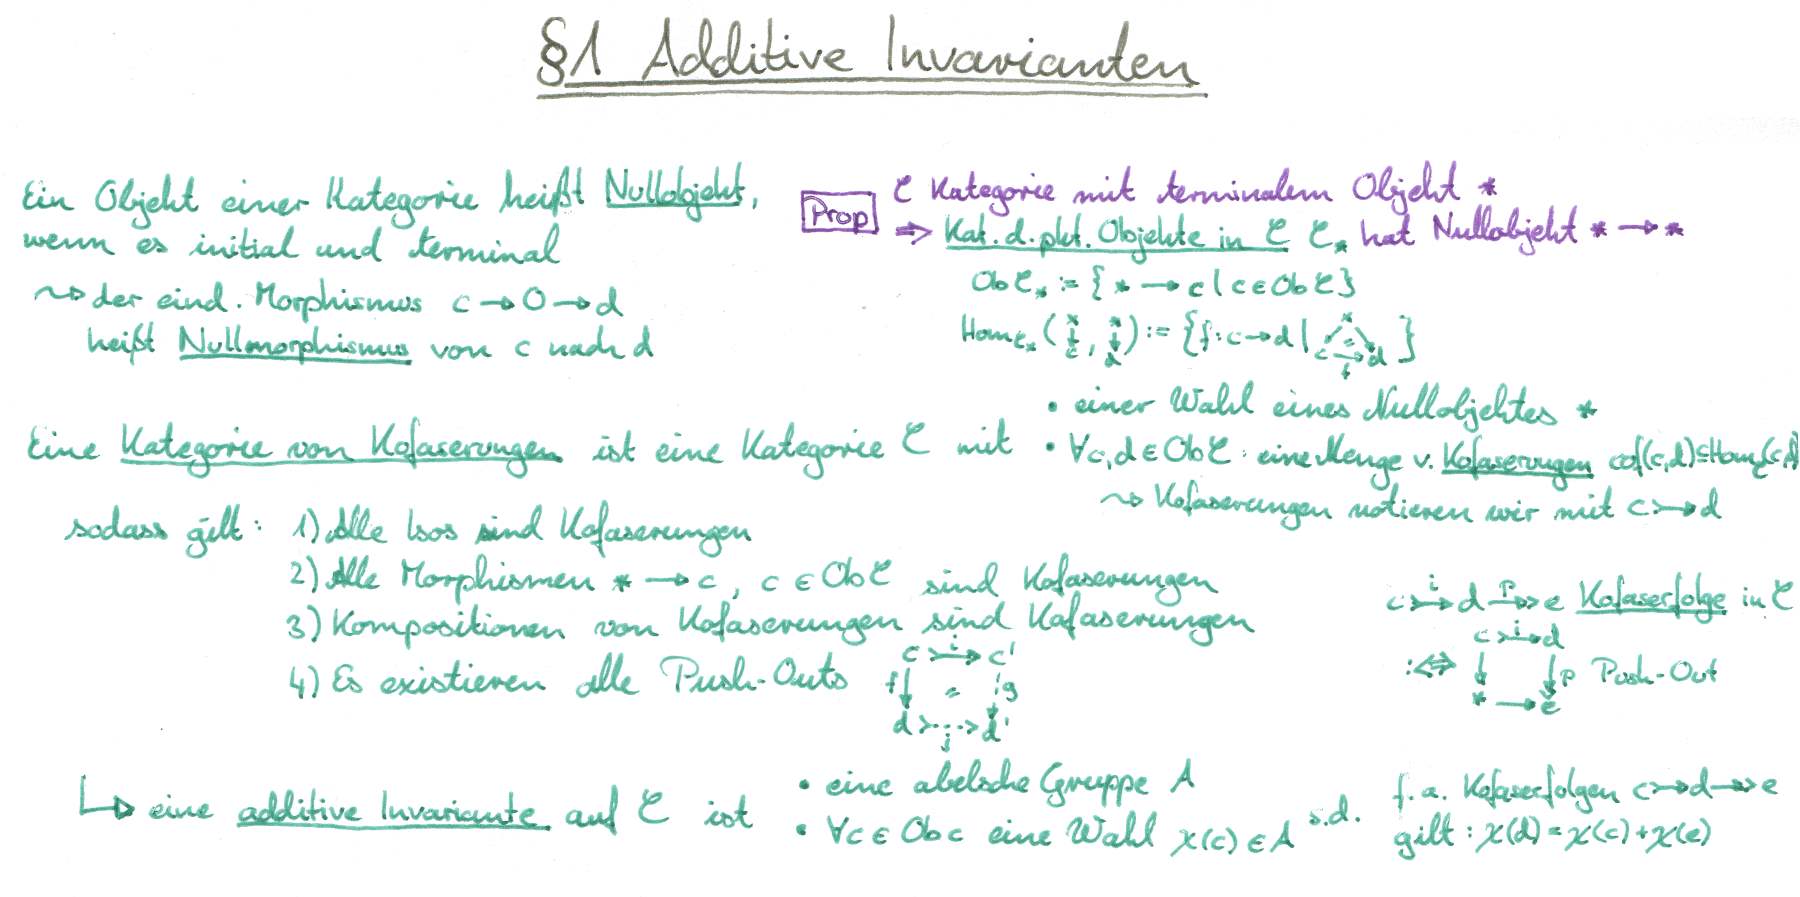 §1 Additive Invarianten
Ein Objekt einer Kategorie heißt Nullobjekt,
wenn es initial und terminal
⇝ der eind. Morphismus c → 0 → d
heißt Nullmorphismus von c nach d
Prop
𝒞 Kategorie mit terminalem Objekt *
⇒ Kat. d. pkt. Objekte in 𝒞 𝒞_* hat Nullobjekt * → *
Ob 𝒞_* := { * → c | c ∈ Ob 𝒞 }
Hom_𝒞_* ( * ↓ c , * ↓ d ) := { f : c → d | * = c → d f }
Eine Kategorie von Kofaserungen ist eine Kategorie 𝒞 mit
• einer Wahl eines Nullobjektes *
• ∀c,d ∈ Ob 𝒞 : eine Menge v. Kofaserungen cof(c,d) ⊆ Hom_𝒞(c,d)
⇝ Kofaserungen notieren wir mit c ↣ d
sodass gilt: 1) Alle Isos sind Kofaserungen
2) Alle Morphismen * → c, c ∈ Ob 𝒞 sind Kofaserungen
3) Kompositionen von Kofaserungen sind Kofaserungen
4) Es existieren alle Push-Outs
c ↣ c' i
f = g
d ↣ d' j
c ↣ d ↠ e Kofaserfolge in 𝒞
i p
c ↣ d i
:⇔ ↓ ↓ p Push-Out
* → e
↳ eine additive Invariante auf 𝒞 ist
• eine abelsche Gruppe A
• ∀c ∈ Ob c eine Wahl χ(c) ∈ A
s.d.
f. a. Kofaserfolgen c ↣ d ↠ e
gilt : χ(d) = χ(c) + χ(e)